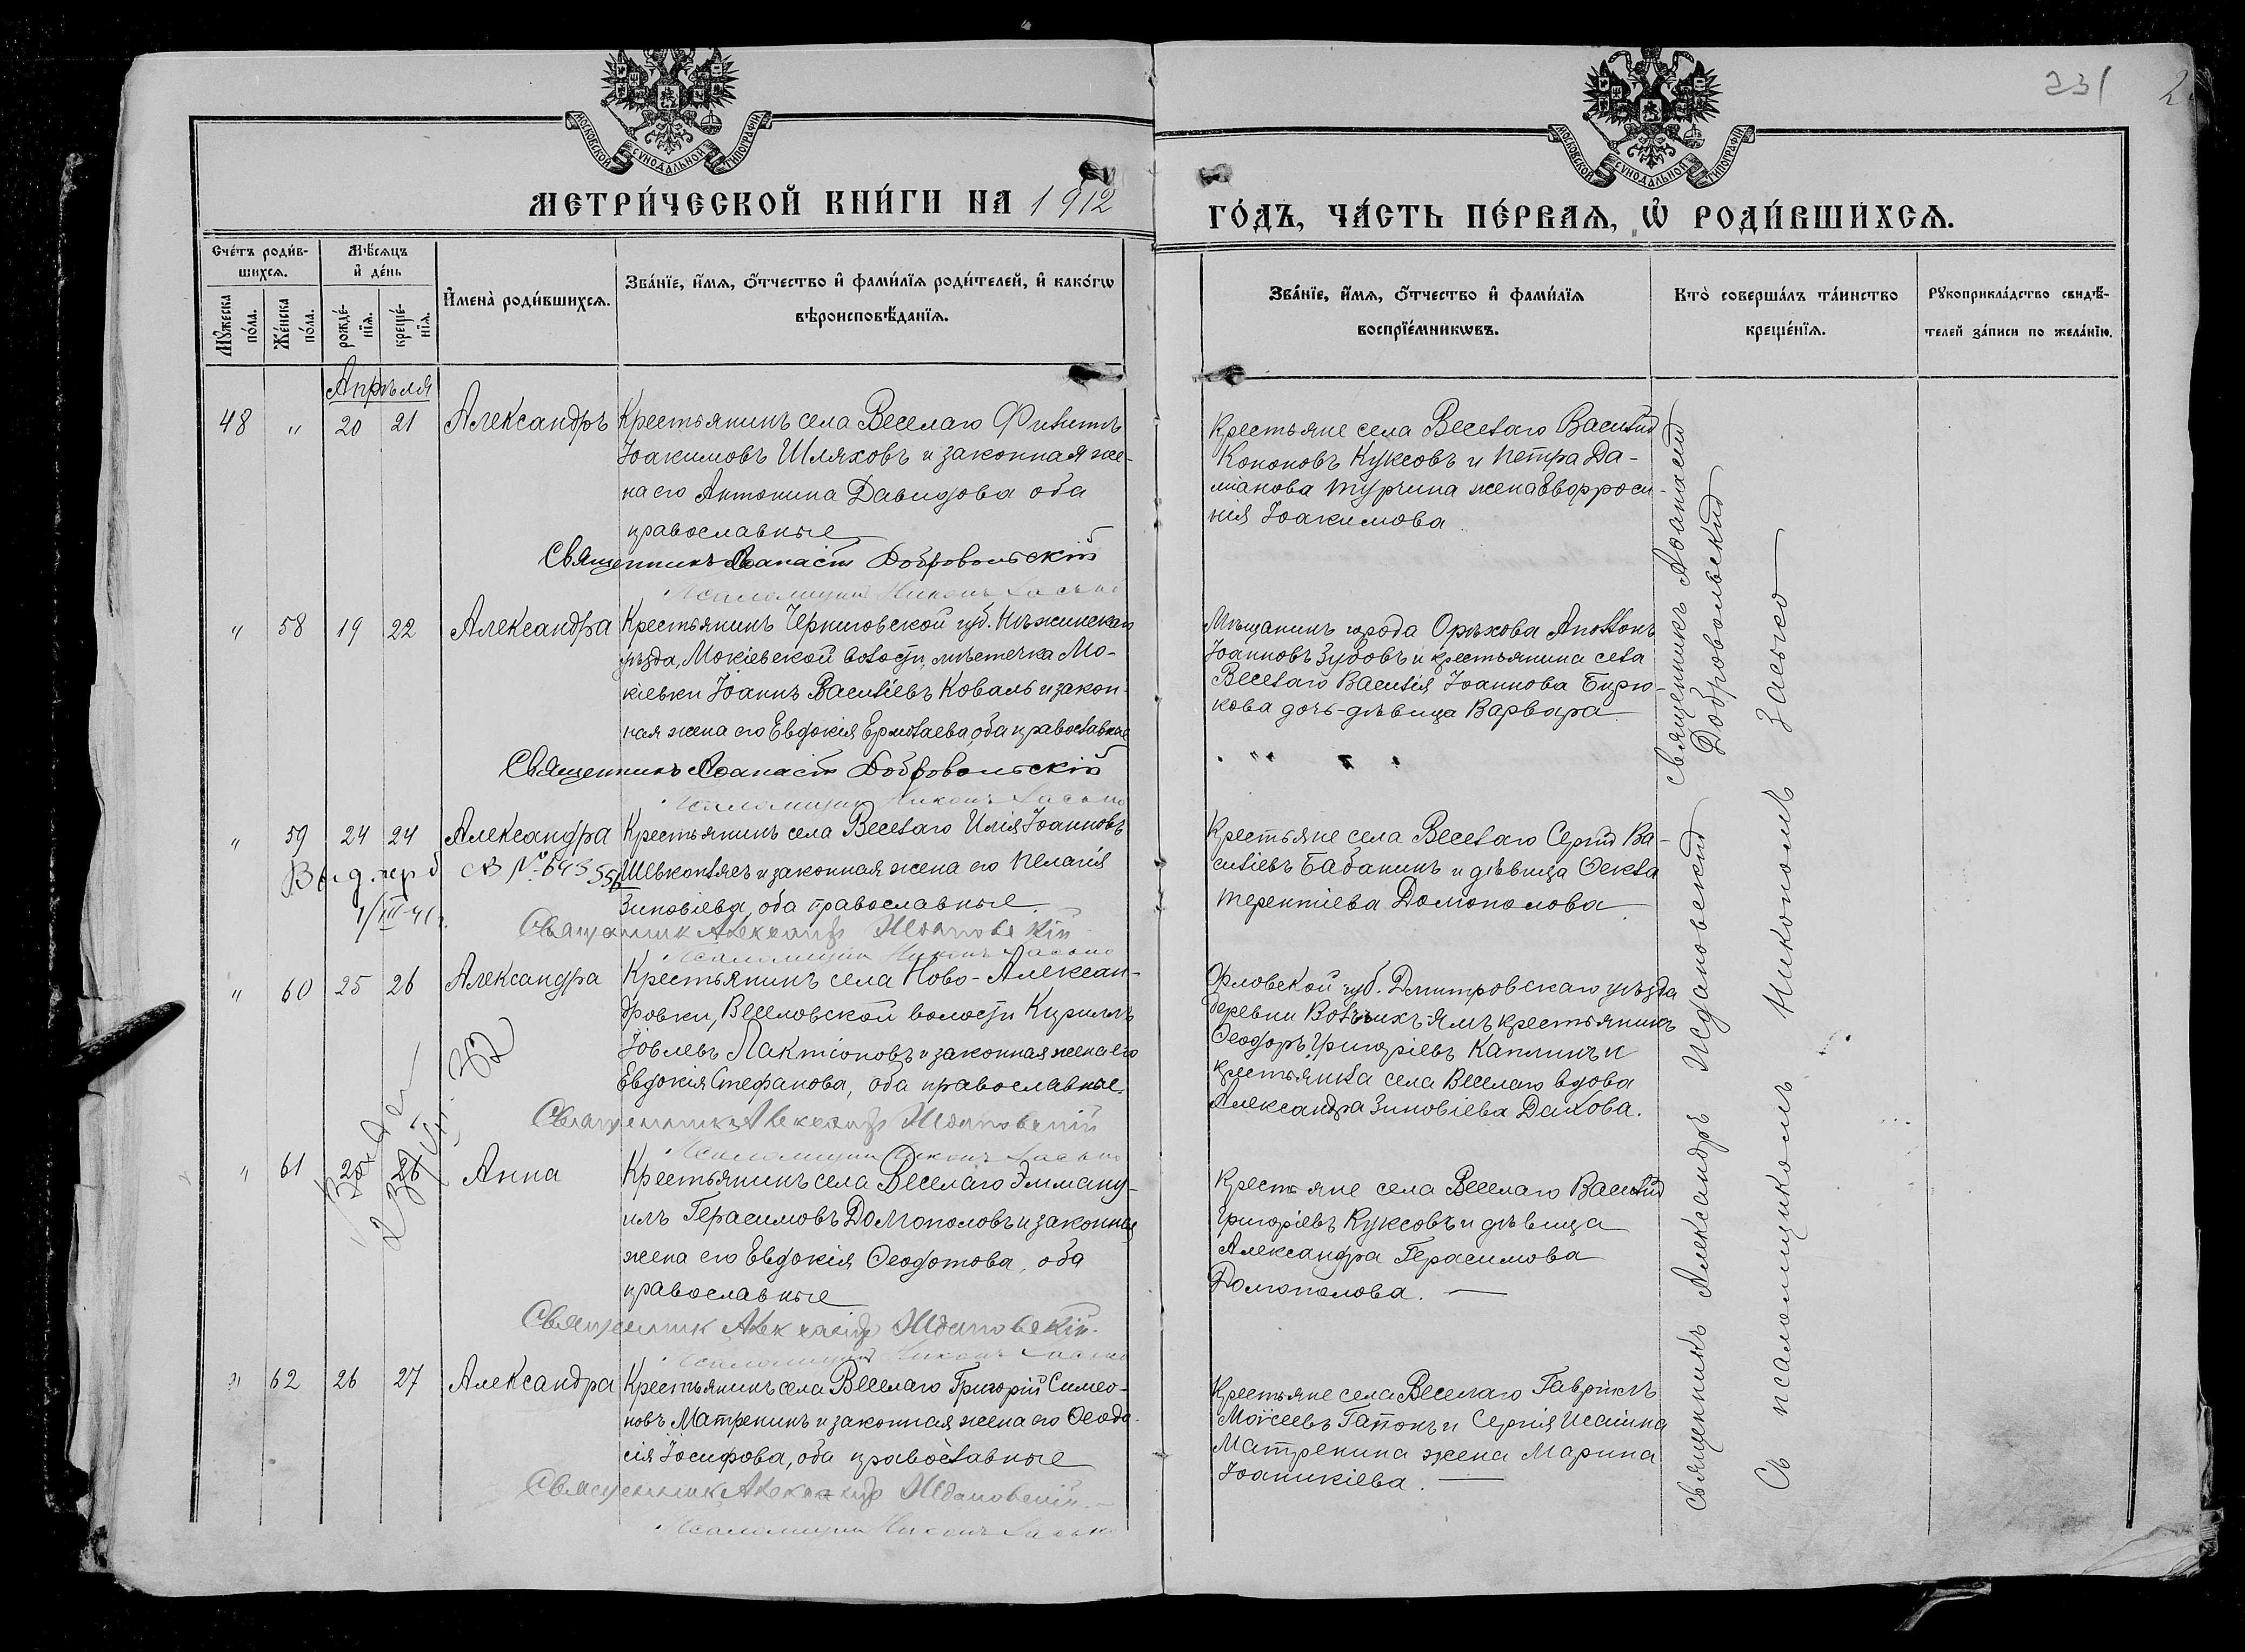 231
МОСКОВСКОЙ СУНОДАЛЬНОЙ ТИПОГРАФІИ
МОСКОВСКОЙ СУНОДАЛЬНОЙ ТИПОГРАФІИ
МЕТРИ́ЧЕСКОЙ КНИ́ГИ НА 1912
ГО́ДЪ, ЧА́СТЬ ПЕ́РВАѦ, Ѡ҆ РОДИ́ВШИХСѦ.
Сче́тъ роди́в-
шихсѧ.
Мѣ́сѧцъ
и҆ де́нь
Мꙋ́жеска
по́ла.
Же́нска
по́ла.
рожде́-
нїѧ.
креще́-
нїѧ.
И҆мена̀ роди́вшихсѧ.
Зва́нїе, и҆́мѧ, ѻ҆́тчество и҆ фами́лїѧ роди́телей, и҆ како́гѡ
вѣроисповѣ́данїѧ.
Зва́нїе, и҆́мѧ, ѻ҆́тчество и҆ фами́лїѧ
воспрїе́мникѡвъ.
Кто̀ соверша́лъ та́инство
креще́нїѧ.
Рꙋкоприкла́дство свидѣ́-
телей за́писи по жела́нїю.
Апрѣля
48 " 20 21 Александръ
Крестьянинъ села Веселаго Филиппъ
Іоакимовъ Шляховъ и законная же-
на его Антонина Давидова оба
православные
Священникъ Аѳанасій Добровольскій
Псаломщикъ Никонъ Засько
Крестьяне села Веселаго Василій
Кононовъ Куксовъ и Петра Да-
міанова Турчина жена Евфроси-
нія Іоакимова
" 58 19 22 Александра
Крестьянинъ Черниговской губ. Нѣжинскаго
уѣзда, Мокіевской волости, мѣстечка Мо-
кіевки Іоаннъ Василіевъ Коваль и закон-
ная жена его Евдокія Ермолаева, оба православные
Священникъ Аѳанасій Добровольскій
Псаломщикъ Никонъ Засько
Мѣщанинъ города Орѣхова Аполлонъ
Іоанновъ Зубовъ и крестьянина села
Веселаго Василія Іоаннова Бирю-
кова дочь-дѣвица Варвара
" 59 24 24 Александра
Крестьянинъ села Веселаго Илія Іоанновъ
Шевкопляс и законная жена его Пелагія
Зиновіева, оба православные.
Священник Александр Ждановскій
Псаломщикъ Никонъ Засько
СВ №
1/III-41г.
Крестьяне села Веселаго Сергій Ва-
силіевъ Бабанинъ и дѣвица Ѳекла
Терентіева Домополова
" 60 25 26 Александра
Крестьянинъ села Ново-Алексан-
дровки, Веселовской волости Кириллъ
Іовлевъ Лактіоновъ и законная жена его
Евдокія Стефанова, оба православные.
Священник Александр Ждановскій
Псаломщикъ Никонъ Засько
Орловской губ. Дмитровскаго уѣзда
деревни Вотчихъ-Ямъ крестьянинъ
Ѳеодоръ Григоріевъ Каплинъ и
крестьянка села Веселаго вдова
Александра Зиновіева Дахова.
" 61 25 26 Анна
Крестьянинъ села Веселаго Эммануи-
илъ Герасимовъ Домополовъ и законная
жена его Евдокія Ѳеодотова, оба
православные
Священник Александр Ждановскій.
Псаломщикъ Никонъ Засько
Крестьяне села Веселаго Василій
Григоріевъ Куксовъ и дѣвица
Александра Герасимова
Домополова.
" 62 26 27 Александра
Крестьянинъ села Веселаго Григорій Симео-
новъ Матренинъ и законная жена его Ѳеодо-
сія Іосифова, оба православные
Священник Александр Ждановскій.
Псаломщикъ Никонъ Засько
Крестьяне села Веселаго Гавріилъ
Моісеевъ Гапонъ и Сергія Исаіина
Матренина жена Марина
Іоаникіева.
Священникъ Аѳанасій
Добровольскій
Священникъ Александръ Ждановскій
Съ псаломщикомъ Никономъ Засько